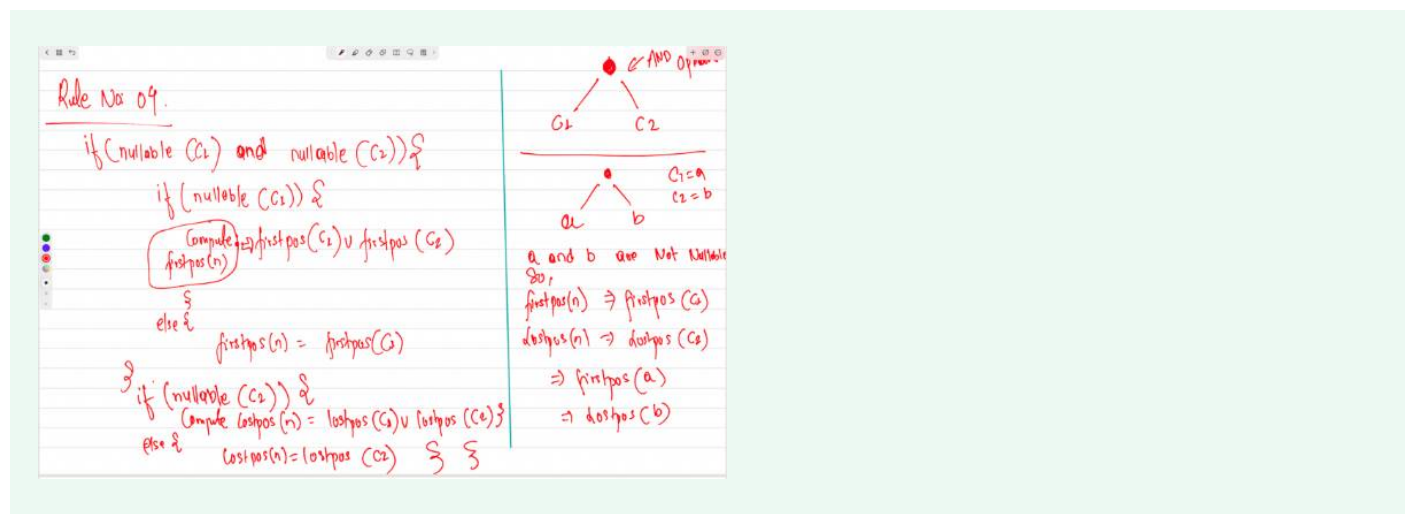 Rule No: 04.
if (nullable (C1) and nullable (C2)) {
if (nullable (C1)) {
Compute firstpos(n) ⇒ firstpos(C1) ∪ firstpos(C2)
}
else {
firstpos(n) = firstpos(C1)
}
if (nullable (C2)) {
Compute lastpos(n) = lastpos(C1) ∪ lastpos(C2) }
else {
lastpos(n) = lastpos (C2) } }
AND
C1 C2
C1 = a
C2 = b
a b
a and b are Not Nullable
So,
firstpos(n) ⇒ firstpos (C1)
Lastpos(n) ⇒ Lastpos (C2)
⇒ firstpos (a)
⇒ Lastpos (b)